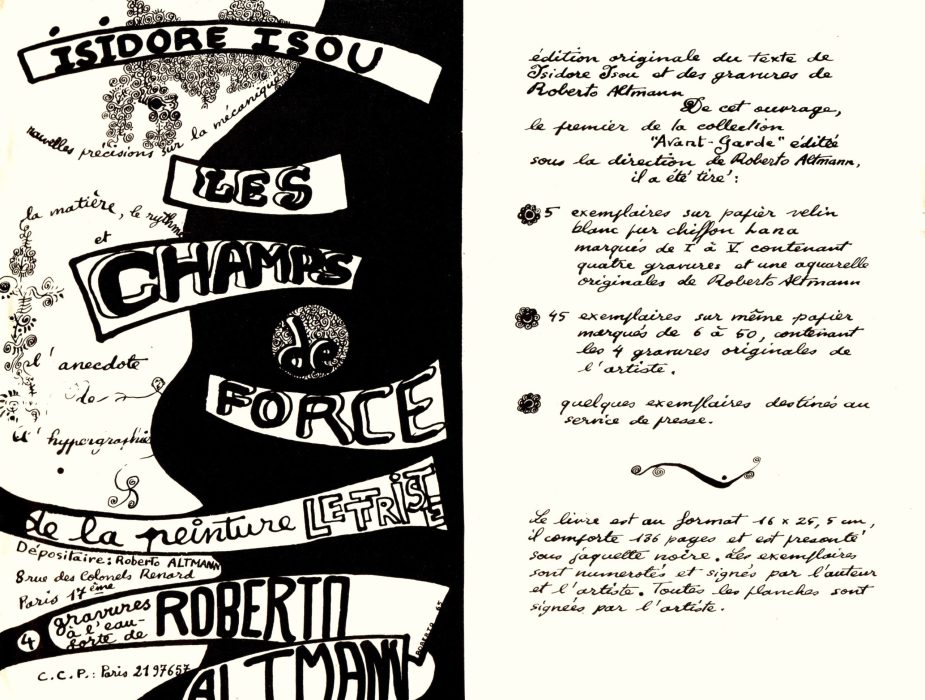 ISIDORE ISOU
nouvelles précisions sur la mécanique
LES
la matière, le rythme
et
CHAMPS
de
l'anecdote
FORCE
de
l'hypergraphie
de la peinture LETTRISTE
Dépositaire: Roberto ALTMANN
8 rue des Colonels Renard
Paris 17ème
4 gravures
à l'eau-
forte de
ROBERTO
ALTMANN
C.C.P.: Paris 2197657
édition originale du texte de
Isidore Isou et des gravures de
Roberto Altmann
De cet ouvrage,
le premier de la collection
"Avant-Garde" éditée
sous la direction de Roberto Altmann,
il a été tiré:
5 exemplaires sur papier velin
blanc pur chiffon Lana
marqués de I à V contenant
quatre gravures et une aquarelle
originales de Roberto Altmann
45 exemplaires sur même papier
marqués de 6 à 50, contenant
les 4 gravures originales de
l'artiste.
quelques exemplaires destinés au
service de presse.
Le livre est au format 16 x 25,5 cm,
il comporte 136 pages et est présenté
sous jaquette noire. Les exemplaires
sont numerotés et signés par l'auteur
et l'artiste. Toutes les planches sont
signées par l'artiste.